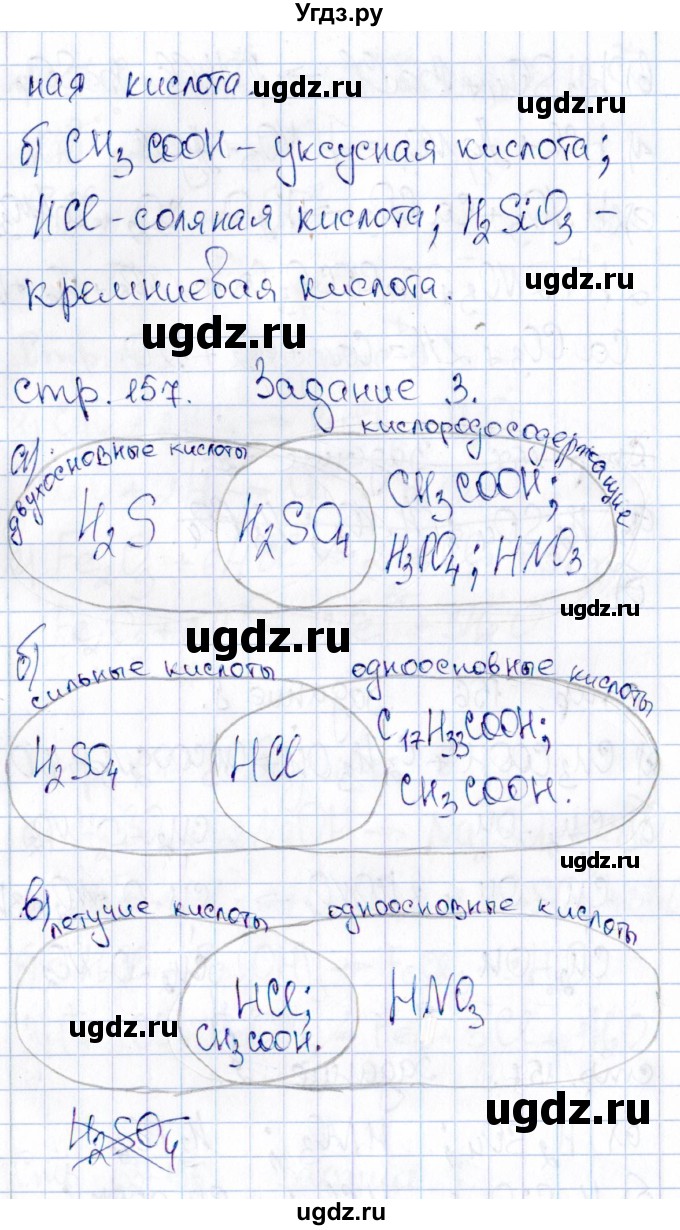 Угдз.ру
ная кислота.
ugdz.ru
ugdz.ru
б) CH₃COOH – уксусная кислота;
HCl – соляная кислота; H₂SiO₃ –
ugdz.ru
кремниевая кислота.
ugdz.ru
стр. 157. Задание 3.
а) двухосновные кислоты кислородосодержащие
H₂S H₂SO₄ CH₃COOH;
H₃PO₄; HNO₃
ugdz.ru
ugdz.ru
б) сильные кислоты одноосновные кислоты
H₂SO₄ HCl C₁₇H₃₃COOH;
CH₃COOH.
ugdz.ru
в) летучие кислоты одноосновные кислоты
HCl; HNO₃
CH₃COOH.
ugdz.ru
ugdz.ru
H₂SO₄
ugdz.ru